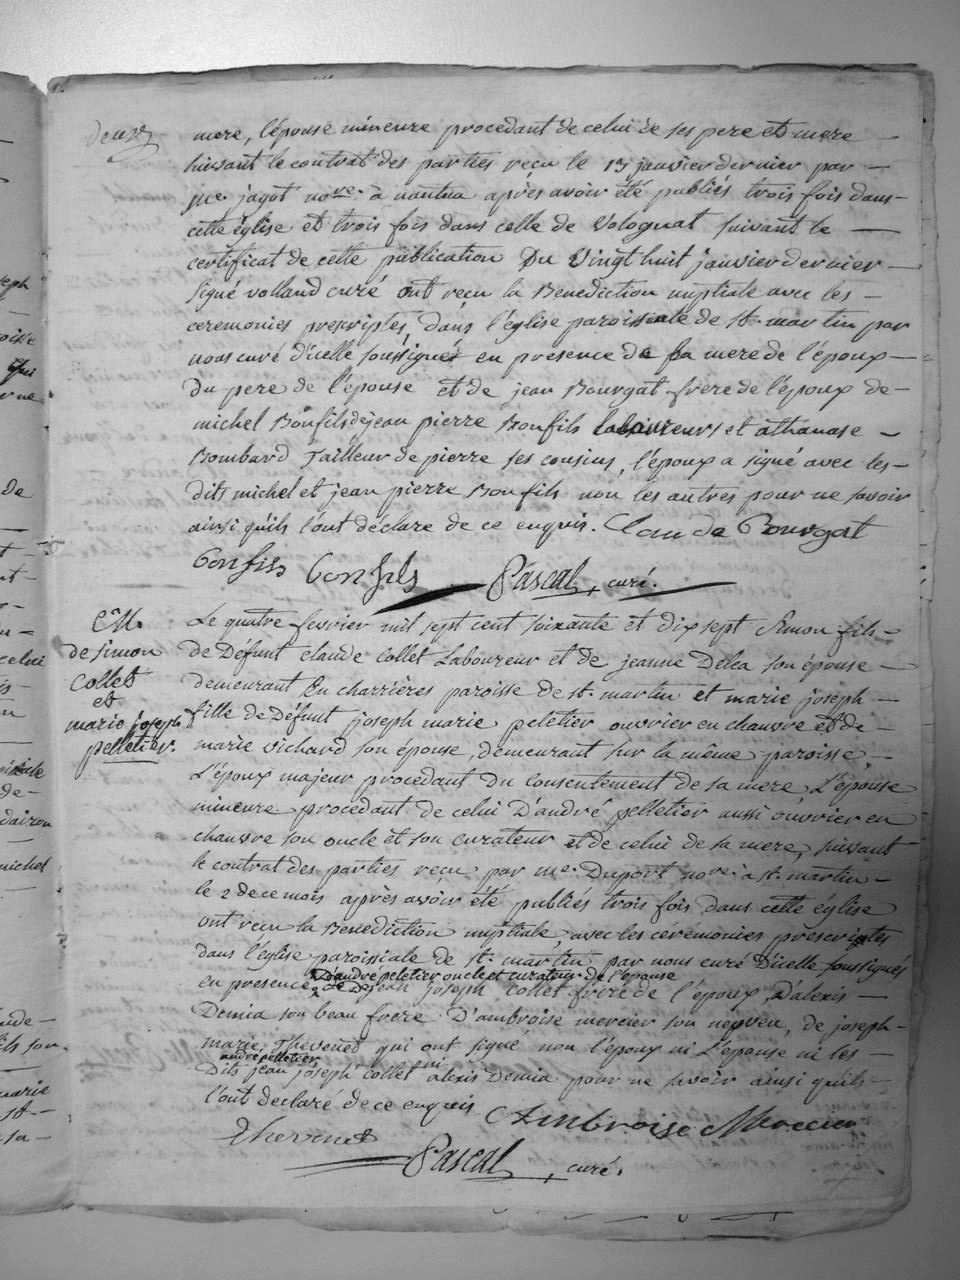 deux
mere, l'épouse mineure procedant de celui de ses pere et mere
suivant le contrat des parties recu le 13 janvier dernier par
me. jagot nore. à nantua après avoir été publiés trois fois dans
cette église et trois fois dans celle de Volognat suivant le
certificat de cette publication Du Vingt huit janvier dernier
signé volland curé ont recu la Benediction nuptiale avec les
ceremonies prescriptes, dans l'église paroissiale de St. martin par
nous curé d'icelle soussigné en presence de sa mere de l'époux
Du pere de l'épouse et de jean Bourgat frere de l'époux de
michel Bonfils de jean pierre Bonfils laboureurs et athanase
Bombard Tailleur de pierre ses cousins, l'époux a signé avec les
dits michel et jean pierre Bonfils non les autres pour ne savoir
ainsi qu'ils l'ont déclaré de ce enquis. Claude Bourgat
Bonfils Bonfils Pascal, curé.
de simon
collet
et
marie joseph
pelletier.
Le quatre fevrier mil sept cent soixante et dix sept Simon fils
De Défunt claude Collet Laboureur et de jeanne Delea son épouse
demeurant En charrières paroisse de St. martin et marie joseph
fille de Défunt joseph marie peletier ouvrier en chauvre et de
marie vichard son épouse, demeurant sur la même paroisse,
L'époux majeur procedant du consentement de sa mere L'épouse
mineure procedant de celui D'andré pelletier aussi ouvrier en
chauvre son oncle et son curateur et de celui de sa mere, suivant
le contrat des parties recu par me. Duport nore. a St. martin
le 2 de ce mois après avoir été publiés trois fois dans cette église
ont recu la Benediction nuptiale avec les ceremonies prescriptes
dans l'église paroissiale de St. martin par nous curé D'icelle soussignés
D'andré peletier oncle et curateur de l'epouse
en presence de jean joseph collet frere de l'époux, D'alexis
Demia son beau frere D'ambroise mercier son neveu, de joseph
marie Thevenet qui ont signé non l'époux ni L'épouse ni les
andré pelletier ni
Dits jean joseph collet alexis Demia pour ne savoir ainsi qu'ils
l'ont declaré de ce enquis Ambroise Mercier
Thevenet
Pascal, curé.